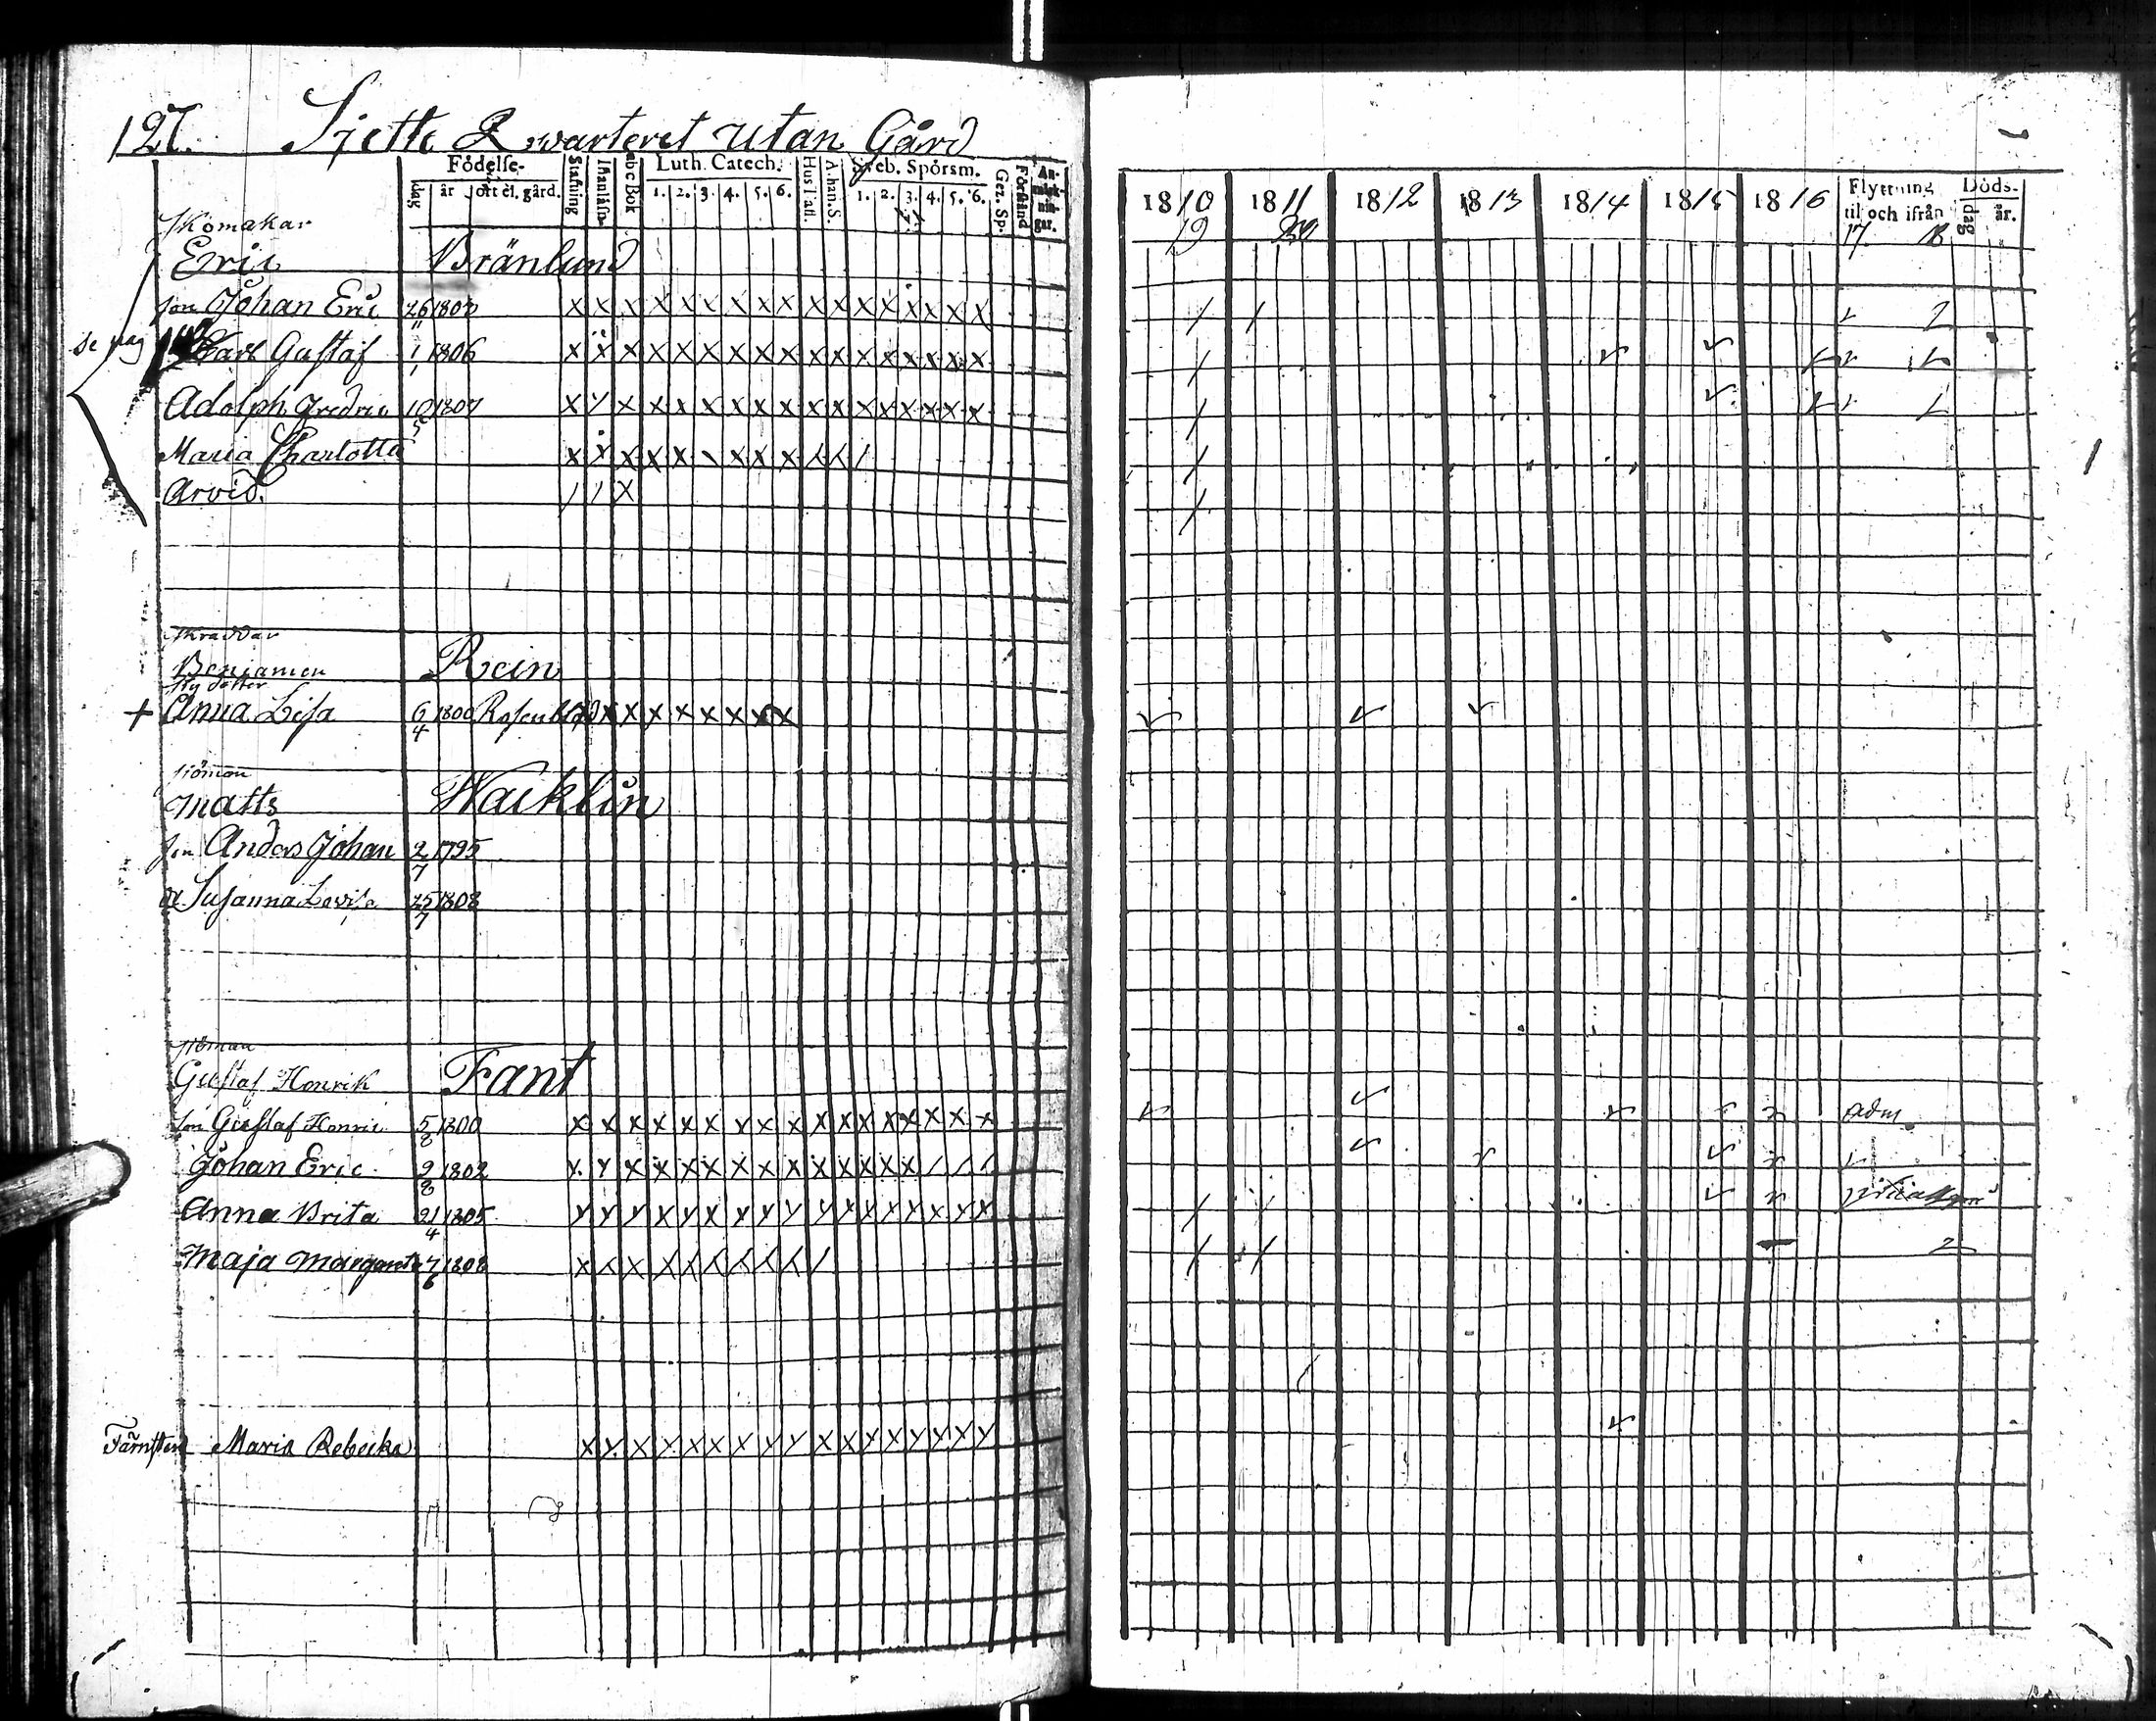 127. Sjette Qwarteret utan Gård
Födelse-
dag år ort el. gård.
Stafning
abc Bok
Luth. Catech.
1. 2. 3. 4. 5. 6.
Hus Tafl.
A.han.S.
Sveb. Spörsm.
1. 2. 3. 4. 5. 6.
Gez. Sp.
Förstånd
An-
märk-
nin-
gar.
1810 1811 1812 1813 1814 1815 1816
Flyttning
til och ifrån
Döds-
dag år.
19 17 18
Skomakar
Eric Bränlund
son Johan Eric 26 1803
11
se pag
Carl Gustaf 1 1806
1
Adolph Fredric 10 1807
5
Maria Charlotta
Arvid.
skraddar
Benjamen Rein
sty dotter
+ Anna Lisa 6 1800 Rosenblad
4
sjöman
Matts Wacklin
son Anders Johan 2 1795
7
d Susanna Lovisa 25 1808
7
sjöman
Gustaf Henrik Fant
son Gustaf Henric 5 1800 adm
8
Johan Eric 9 1802
8
Anna Brita 21 1805
4
Maja Margareta 7 1808
6
Maria Rebecka